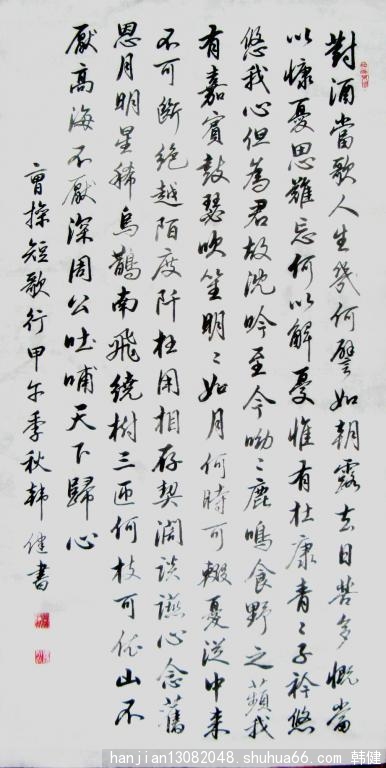 對酒當歌人生幾何譬如朝露去日苦多慨當
以慷憂思難忘何以解憂惟有杜康青〻子衿悠
悠我心但為君故沈吟至今呦〻鹿鳴食野之蘋我
有嘉賓鼓瑟吹笙明〻如月何時可輟憂從中来
不可斷絕越陌度阡枉用相存契闊談讌心念舊
恩月明星稀烏鵲南飛繞樹三匝何枝可依山不
厭高海不厭深周公吐哺天下歸心
曹操短歌行甲午季秋韓健書
hanjian13082048.shuhua66.com 韩健